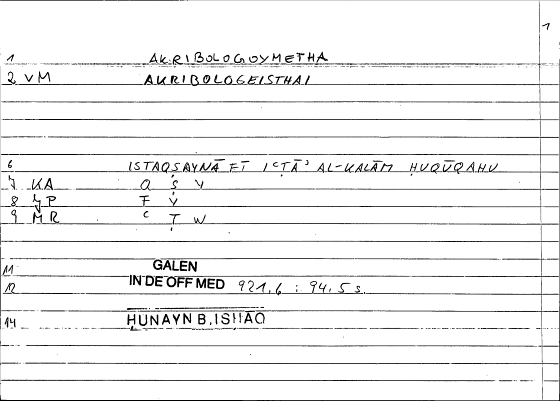 1
1 AKRIBOLOGOYMETHA
2 VM AKRIBOLOGEISTHAI
6 ISTAQṢAYNĀ FĪ IʿṬĀʾ AL-KALĀM ḤUQŪQAHU
7 KA Q Ṣ Y
8 JP F Y
9 MR ʿ Ṭ W
11 GALEN
12 IN DE OFF MED 921,6 : 94.5 s.
14 ḤUNAYN B. ISḤĀQ